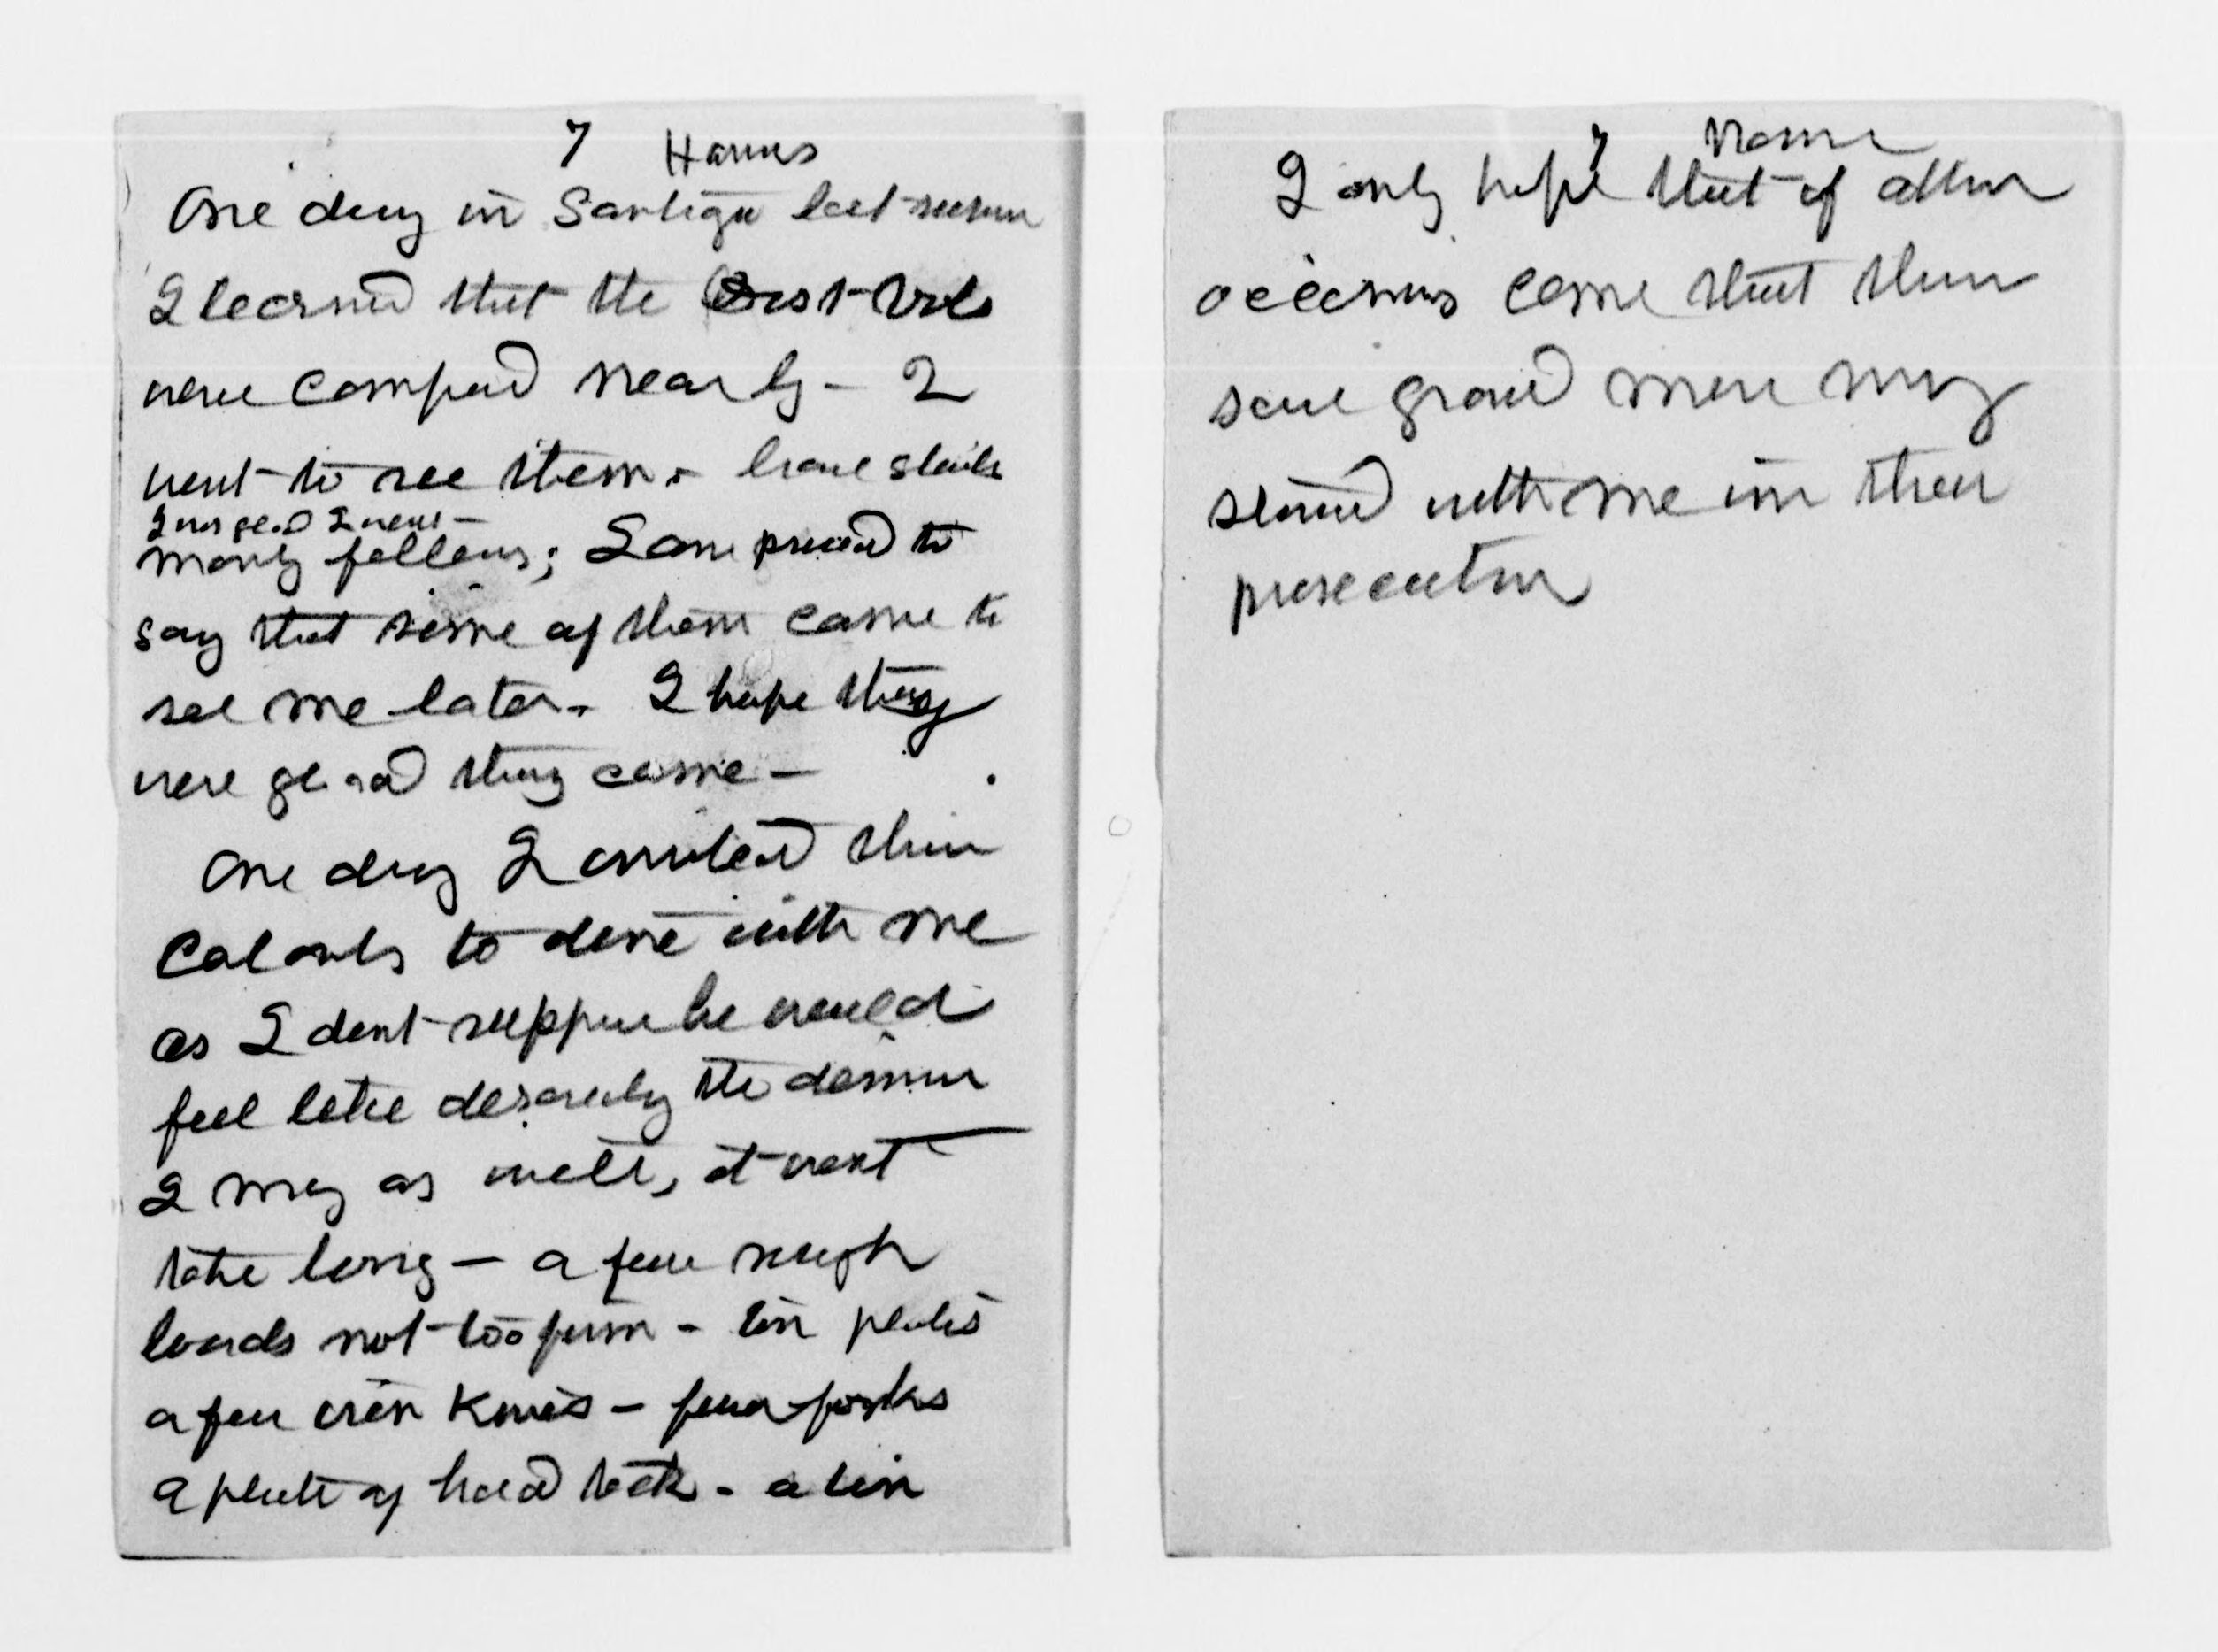 7
One day in Santiago last
I learned that the
were camped nearly - I
went to see them - 
I was glad I went -
manly fellows; I am proud to
say that some of them came to
see me later - I hope they
were glad they came -
One day I invited their
Colonels to dine with me
as I dont suppose he would
feel like describing the dinner
I may as well, it wont
take long - a few rough
boards not too firm - tin plates
a few iron knives - few forks
a plate of hard tack - a tin
7
I only hope that if other
occasions come that these
same grand men may
stand with me in their
prosecution